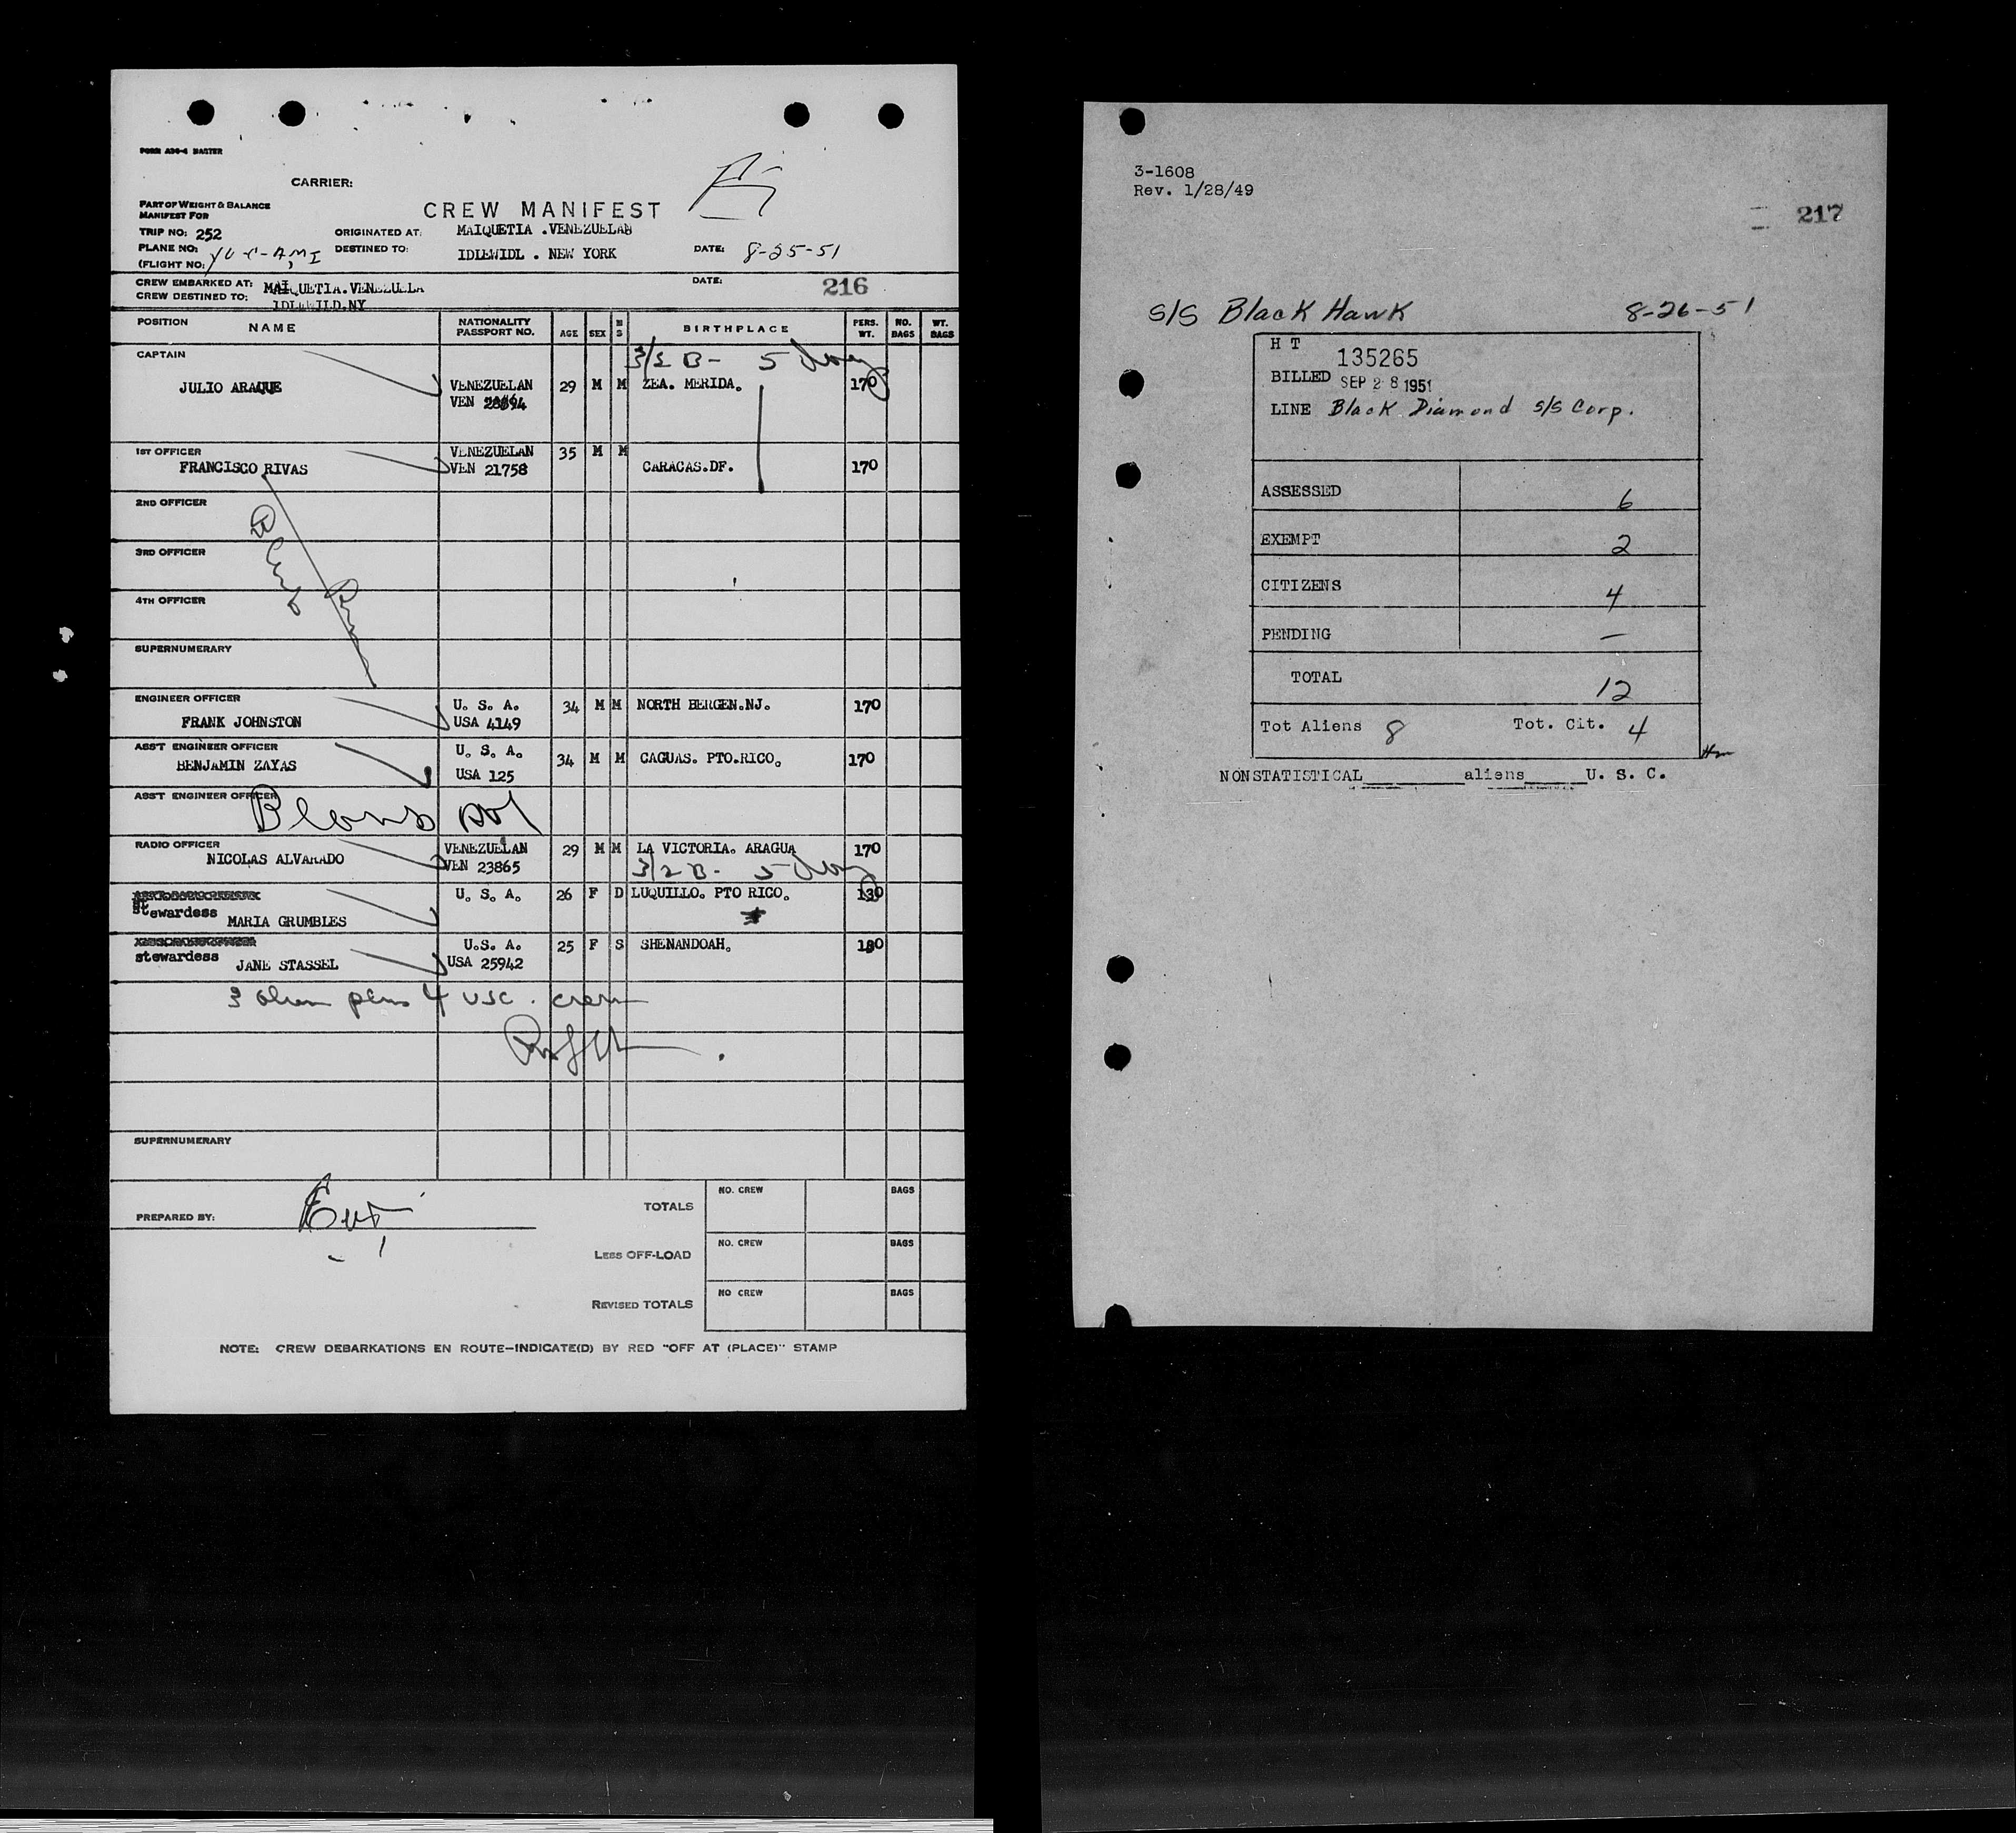 FORM A30-4 MASTER
CARRIER:
PART OF WEIGHT & BALANCE
MANIFEST FOR
CREW MANIFEST
TRIP NO: 252
ORIGINATED AT: MAIQUETIA .VENEZUELAN
PLANE NO:
(FLIGHT NO:
DESTINED TO: IDLEWIDL . NEW YORK
DATE: 8-25-51
CREW EMBARKED AT: MAIQUETIA.VENEZUELA
DATE:
216
CREW DESTINED TO: IDLEWILD.NY
POSITION NAME NATIONALITY PASSPORT NO. AGE SEX M S BIRTHPLACE PERS. WT. NO. BAGS WT. BAGS
CAPTAIN
JULIO ARAQUE VENEZUELAN 29 M M ZEA. MERIDA. 170
VEN
1ST OFFICER VENEZUELAN 35 M M
FRANCISCO RIVAS VEN 21758 CARACAS.DF. 170
2ND OFFICER
3RD OFFICER
4TH OFFICER
SUPERNUMERARY
ENGINEER OFFICER U. S. A. 34 M M NORTH BERGEN.NJ. 170
FRANK JOHNSTON USA 4149
ASS'T ENGINEER OFFICER U. S. A.
BENJAMIN ZAYAS 34 M M CAGUAS. PTO.RICO. 170
USA 125
ASS'T ENGINEER OFFICER
RADIO OFFICER VENEZUELAN 29 M M LA VICTORIA. ARAGUA 170
NICOLAS ALVARADO VEN 23865
U. S. A. 26 F D LUQUILLO. PTO RICO. 130
stewardess MARIA GRUMBLES
U.S. A. 25 F S SHENANDOAH. 130
stewardess JANE STASSEL USA 25942
3 alien plus 4 USC . crew
SUPERNUMERARY
PREPARED BY:
TOTALS NO. CREW BAGS
LESS OFF-LOAD NO. CREW BAGS
REVISED TOTALS NO CREW BAGS
NOTE: CREW DEBARKATIONS EN ROUTE—INDICATE(D) BY RED "OFF AT (PLACE)" STAMP
3-1608
Rev. 1/28/49
217
S/S Black Hawk 8-26-51
H T
135265
BILLED SEP 28 1951
LINE Black Diamond S/S Corp.
ASSESSED 6
EXEMPT 2
CITIZENS 4
PENDING —
TOTAL 12
Tot Aliens 8 Tot. Cit. 4
NONSTATISTICAL________aliens_____U. S. C.